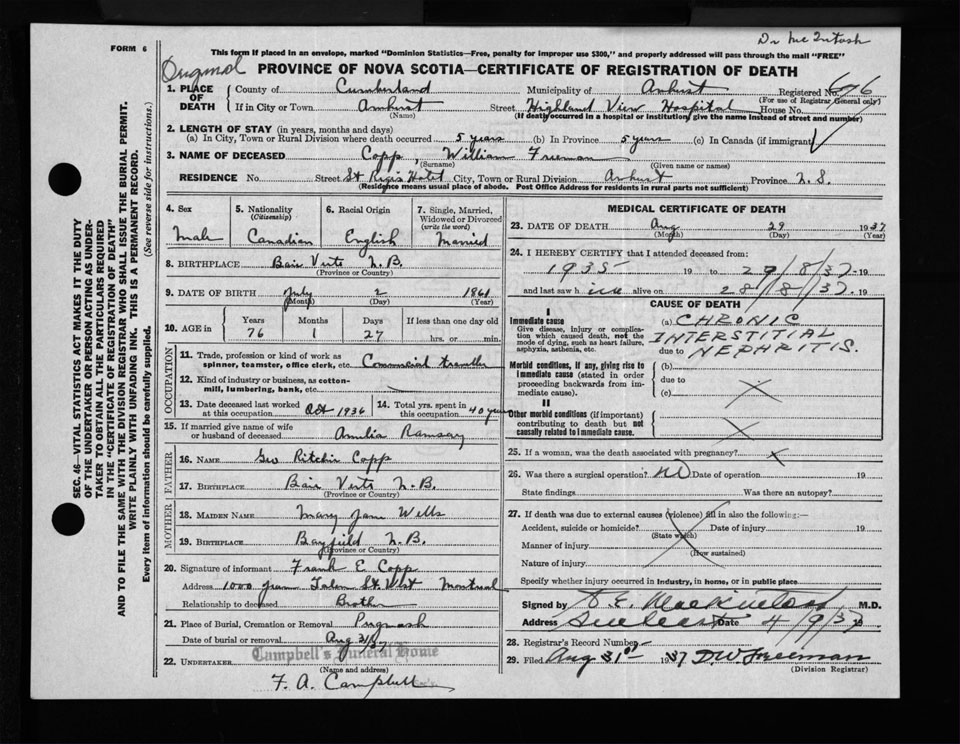 Dr McIntosh
FORM 6
This form if placed in an envelope, marked "Dominion Statistics—Free, penalty for improper use $300," and properly addressed will pass through the mail "FREE"
PROVINCE OF NOVA SCOTIA—CERTIFICATE OF REGISTRATION OF DEATH
1. PLACE OF DEATH County of Cumberland Municipality of Amherst Registered No. 676
(For use of Registrar General only)
If in City or Town Amherst Street Highland View Hospital House No.
(Name) (If death occurred in a hospital or institution, give the name instead of street and number)
2. LENGTH OF STAY (in years, months and days)
(a) In City, Town or Rural Division where death occurred 5 years (b) In Province 5 years (c) In Canada (if immigrant)
3. NAME OF DECEASED Copp, William Freeman
(Surname) (Given name or names)
RESIDENCE No. Street St Regis Hotel City, Town or Rural Division Amherst Province N.S.
(Residence means usual place of abode. Post Office Address for residents in rural parts not sufficient)
4. Sex Male
5. Nationality (Citizenship) Canadian
6. Racial Origin English
7. Single, Married, Widowed or Divorced (write the word) Married
8. BIRTHPLACE Baie Verte N.B.
(Province or Country)
9. DATE OF BIRTH July 2 1861
(Month) (Day) (Year)
10. AGE in Years 76 Months 1 Days 27 If less than one day old hrs. or min.
OCCUPATION
11. Trade, profession or kind of work as spinner, teamster, office clerk, etc. Commercial traveller
12. Kind of industry or business, as cotton-mill, lumbering, bank, etc.
13. Date deceased last worked at this occupation Oct 1936
14. Total yrs. spent in this occupation 40 years
15. If married give name of wife or husband of deceased Amelia Ramsay
FATHER
16. NAME Geo Ritchie Copp
17. BIRTHPLACE Baie Verte N.B.
(Province or Country)
MOTHER
18. MAIDEN NAME Mary Jane Wells
19. BIRTHPLACE Bayfield N.B.
(Province or Country)
20. Signature of informant Frank E Copp
Address 1000 St. West Montreal
Relationship to deceased Brother
21. Place of Burial, Cremation or Removal Pugwash
Date of burial or removal Aug 31/37
Campbell's Funeral Home
22. UNDERTAKER
(Name and address)
F. A. Campbell
MEDICAL CERTIFICATE OF DEATH
23. DATE OF DEATH Aug 29 1937
(Month) (Day) (Year)
24. I HEREBY CERTIFY that I attended deceased from:
1935 19 to 29/8/37 19
and last saw h im alive on 28/8/37 19
CAUSE OF DEATH
I
Immediate cause
Give disease, injury or complication which caused death, not the mode of dying, such as heart failure, asphyxia, asthenia, etc.
(a) CHRONIC
INTERSTITIAL
due to NEPHRITIS.
Morbid conditions, if any, giving rise to immediate cause (stated in order proceeding backwards from immediate cause).
(b)
due to
(c)
II
Other morbid conditions (if important) contributing to death but not causally related to immediate cause.
25. If a woman, was the death associated with pregnancy? x
26. Was there a surgical operation? No Date of operation 19
State findings Was there an autopsy?
27. If death was due to external causes (violence) fill in also the following:—
Accident, suicide or homicide? Date of injury 19
(State which)
Manner of injury
(How sustained)
Nature of injury
Specify whether injury occurred in industry, in home, or in public place
Signed by M.D.
Address Amherst Date 4/9/37 19
28. Registrar's Record Number
29. Filed Aug 31st 1937 D.W. Freeman
(Division Registrar)
SEC. 46—VITAL STATISTICS ACT MAKES IT THE DUTY
OF THE UNDERTAKER OR PERSON ACTING AS UNDER-
TAKER TO OBTAIN ALL THE PARTICULARS REQUIRED
IN THE "CERTIFICATE OF REGISTRATION OF DEATH"
AND TO FILE THE SAME WITH THE DIVISION REGISTRAR WHO SHALL ISSUE THE BURIAL PERMIT.
WRITE PLAINLY WITH UNFADING INK. THIS IS A PERMANENT RECORD.
Every item of information should be carefully supplied. (See reverse side for instructions.)